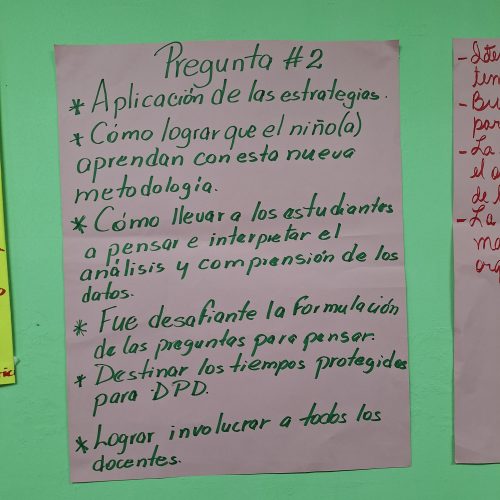 Pregunta #2
* Aplicación de las estrategias.
* Cómo lograr que el niño(a)
aprendan con esta nueva
metodología.
* Cómo llevar a los estudiantes
a pensar e interpretar el
análisis y comprensión de los
datos.
* Fue desafiante la formulación
de las preguntas para pensar.
* Destinar los tiempos protegidos
para DPD.
* Lograr involucrar a todos los
docentes.
- La
- La